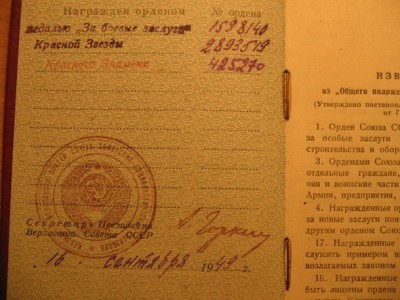 Награжден орденом № ордена
медалью „За боевые заслуги“ 1598140
Красной Звезды 2893519
Красного Знамени 425270
Секретарь Президиума
Верховного Совета СССР
А. Горкин
16 сентября 1949 г.
ИЗВ
из „Общего полож
(Утверждено постанов
от 7
1. Орден Союза СС
за особые заслуги
строительства и обор
3. Орденами Союза
отдельные граждане,
ния и воинские части
Армии, предприятия,
4. Награжденные ор
за новые заслуги пов
другим орденом Союз
17. Награжденные
служить примером и
возлагаемых законом
18. Награжденные
быть лишены ордена